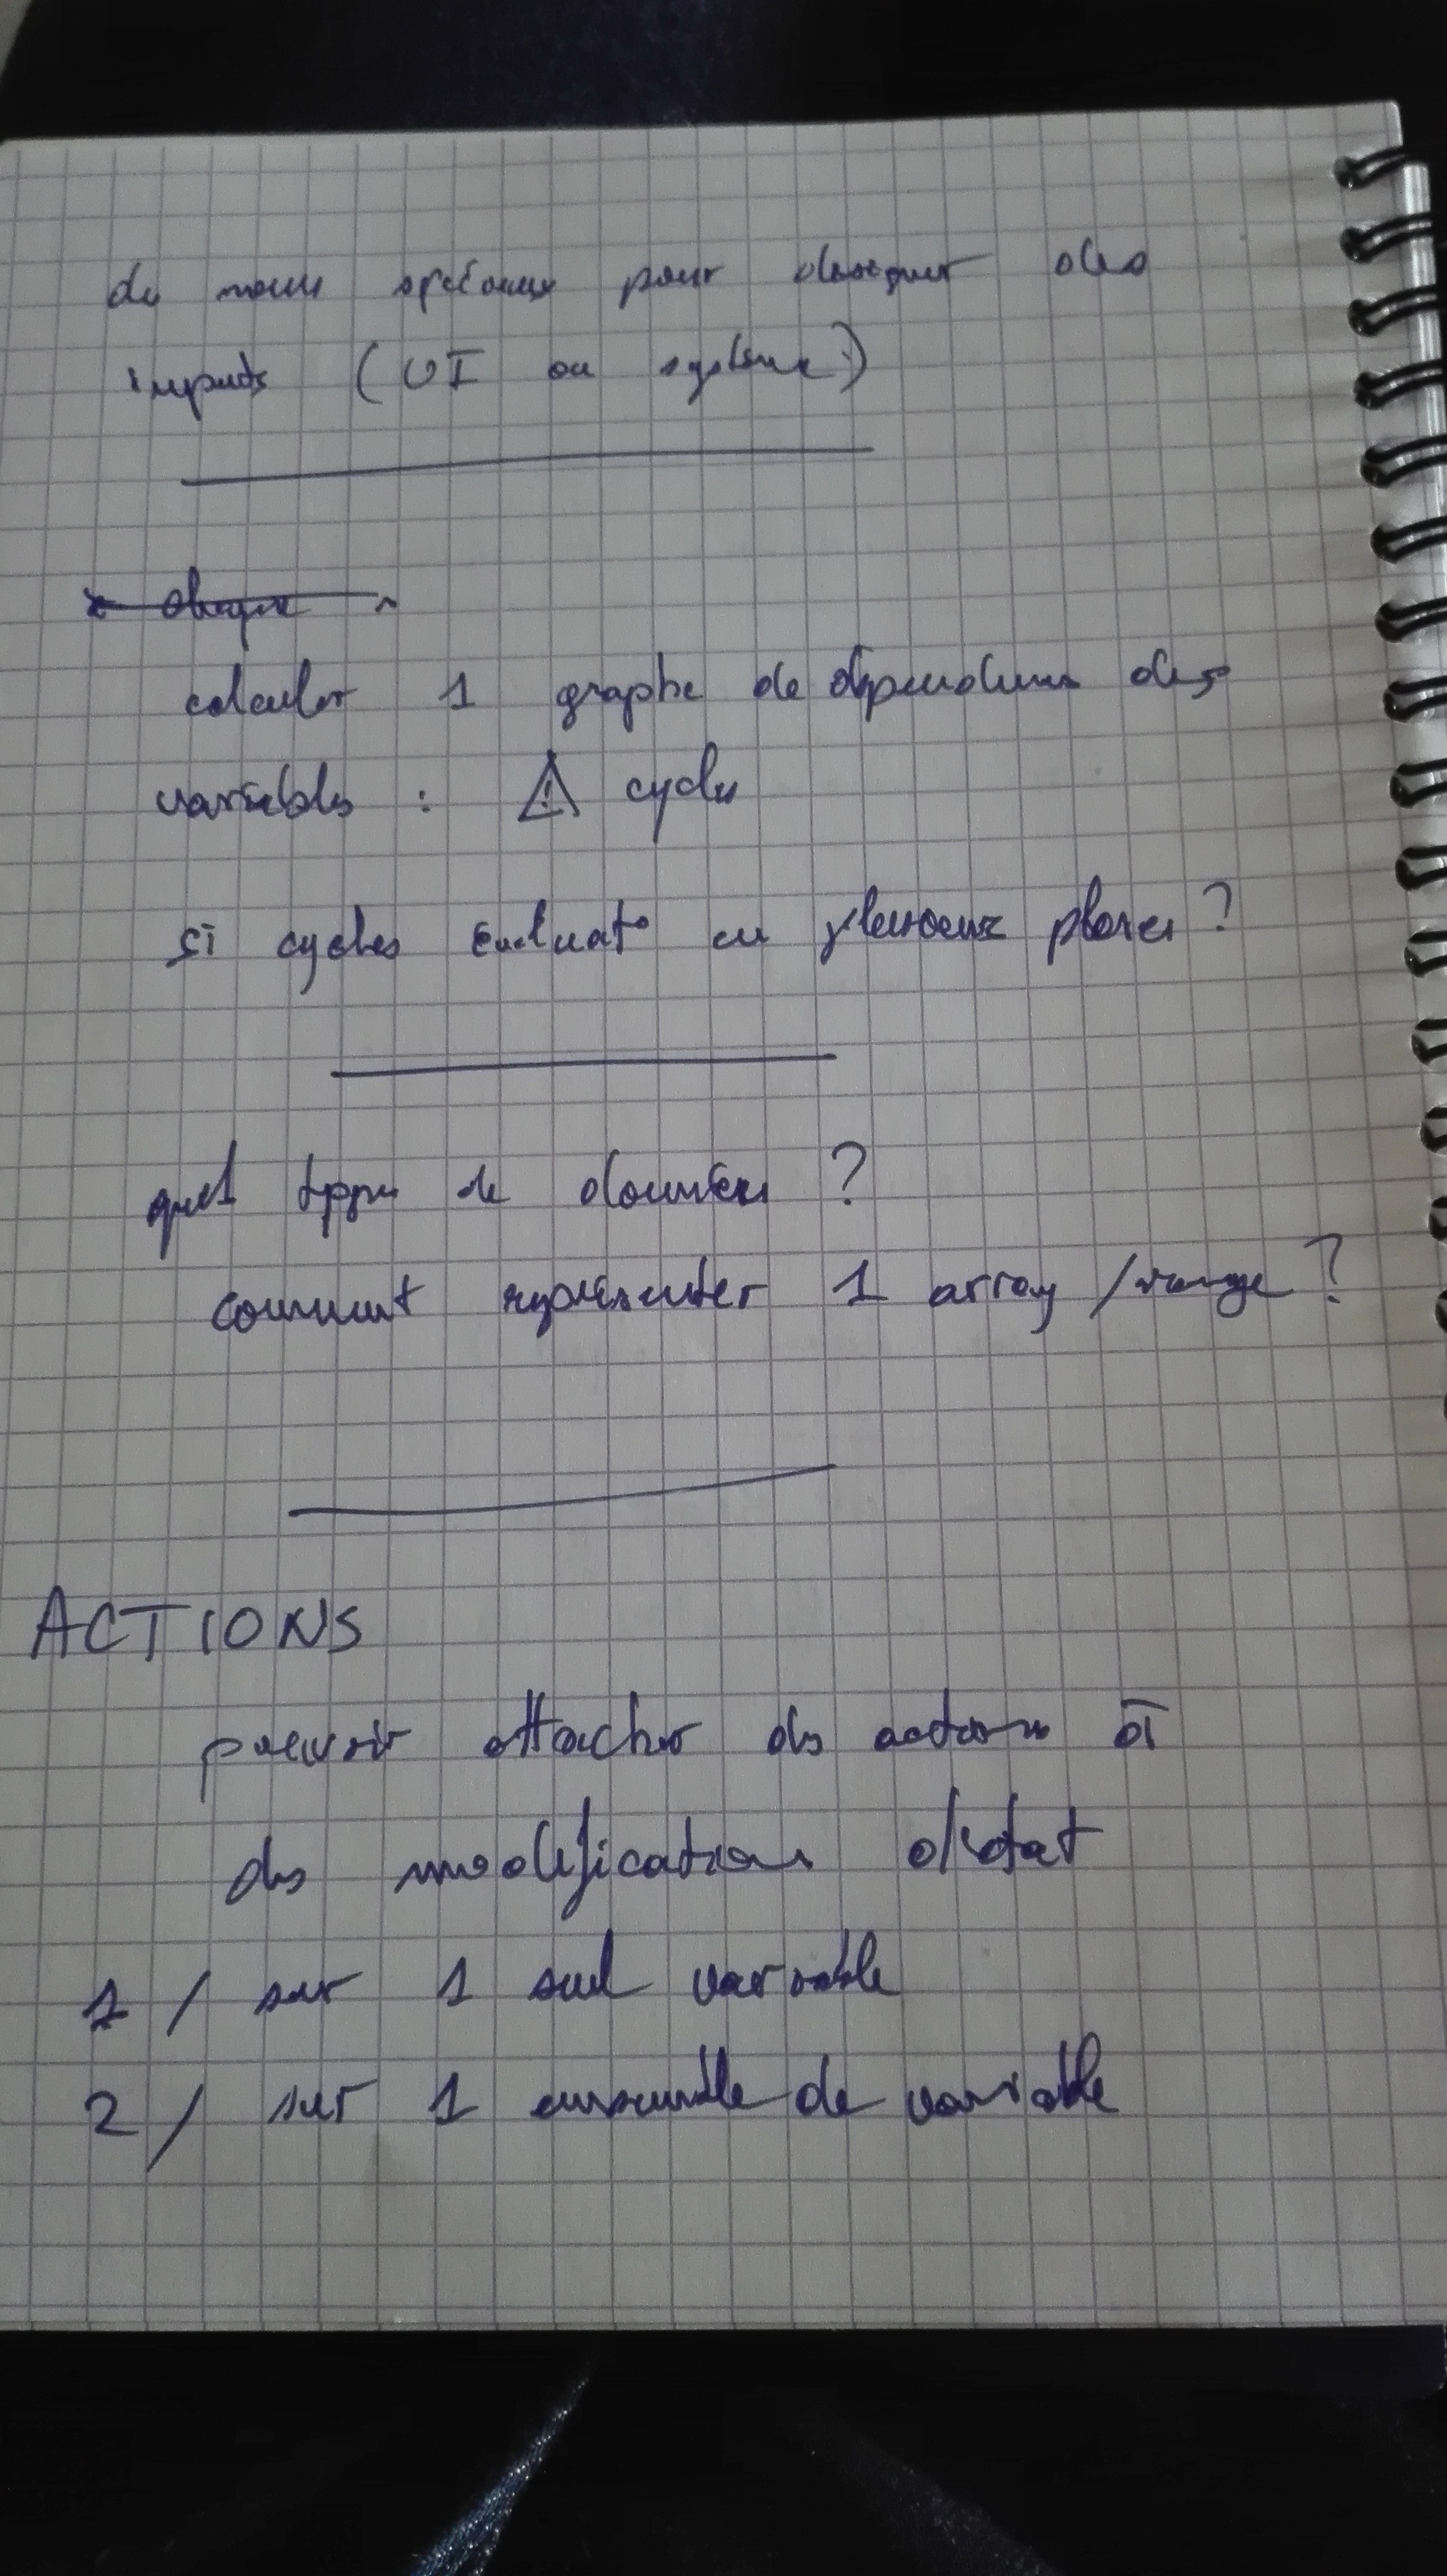 des noms spéciaux pour designer des
inputs (UI ou système)
calculer 1 graphe de dependences des
variables : ⚠ cycles
si cycles evaluat° en plusieurs phases ?
quel types de données ?
comment représenter 1 array / range ?
ACTIONS
pouvoir attacher des actions à
des modifications d'etat
1 / sur 1 seul variable
2 / sur 1 ensemble de variable